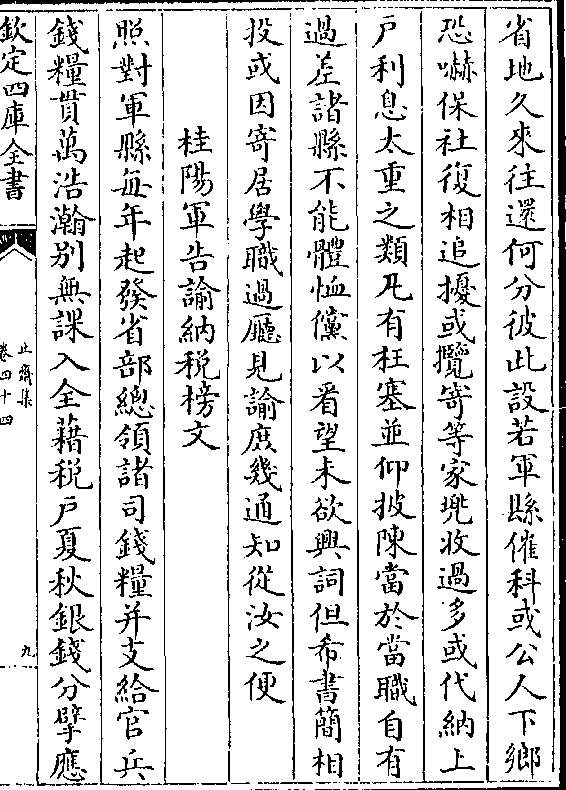 省地久來往還何分彼此設若軍縣催科或公人下鄉
恐嚇保社復相追擾或攬寄等家兠收過多或代納上
戶利息太重之類凡有枉塞並仰披陳當於當職自有
過差諸縣不能體恤儻以看望未欲興詞但希書簡相
投或因寄居學職過廳見諭庶幾通知從汝之便
桂陽軍告諭納稅榜文
照對軍縣每年起發省部總領諸司錢糧并支給官兵
錢糧貫萬浩瀚别無課入全藉稅戶夏秋銀錢分擘應
欽定四庫全書
止齋集
卷四十四
九